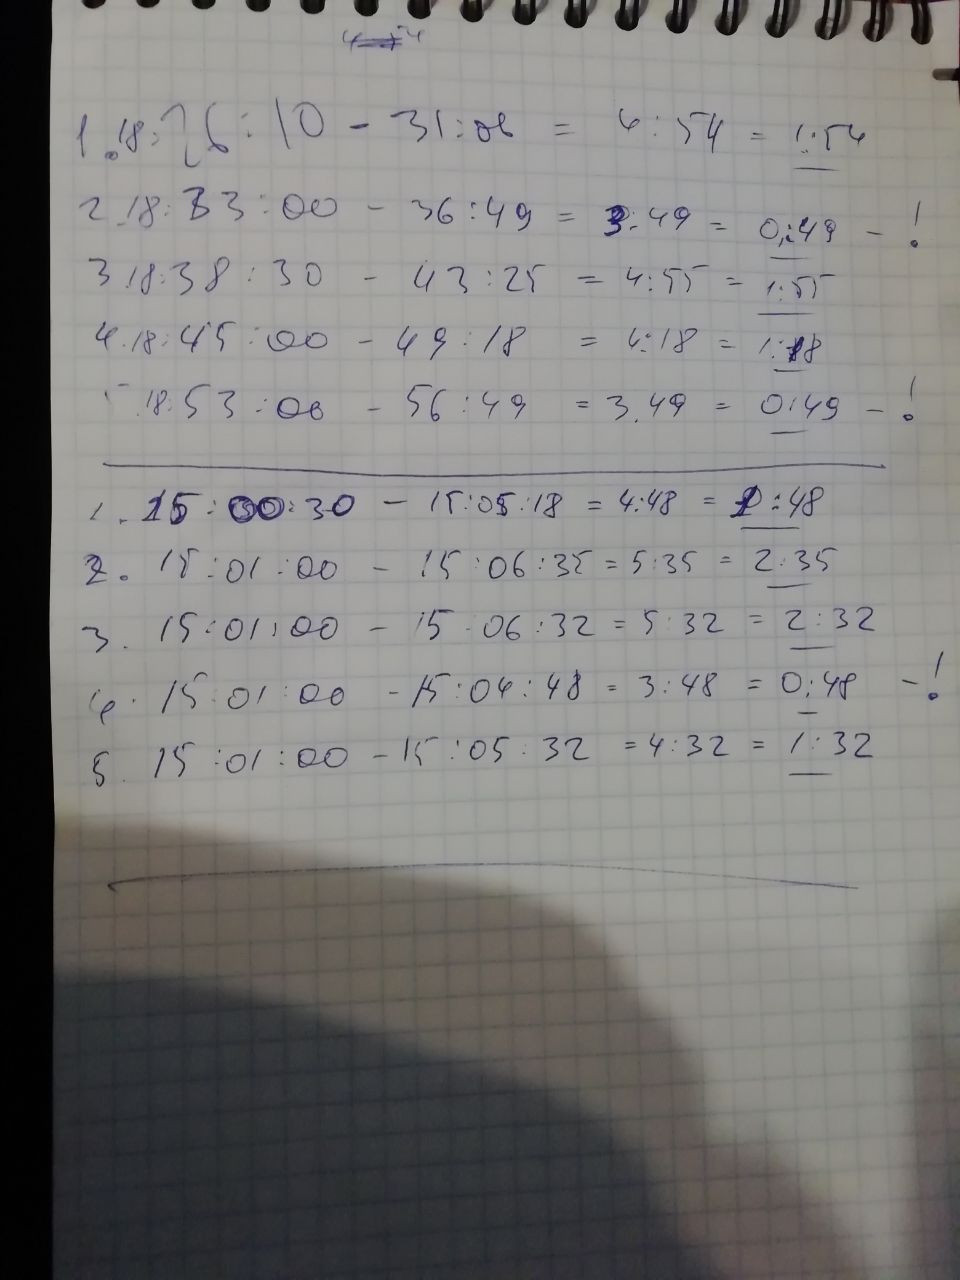 1. 18:26:10 - 31:06 = 4:54 = 1:54
2. 18:33:00 - 36:49 = 3:49 = 0:49 - !
3. 18:38:30 - 43:25 = 4:55 = 1:55
4. 18:45:00 - 49:18 = 4:18 = 1:18
18:53:00 - 56:49 = 3.49 = 0:49 - !
1. 15:00:30 - 15:05:18 = 4:48 = 1:48
2. 15:01:00 - 15:06:35 = 5:35 = 2:35
3. 15:01:00 - 15:06:32 = 5:32 = 2:32
4. 15:01:00 - 15:04:48 = 3:48 = 0:48 - !
5. 15:01:00 - 15:05:32 = 4:32 = 1:32